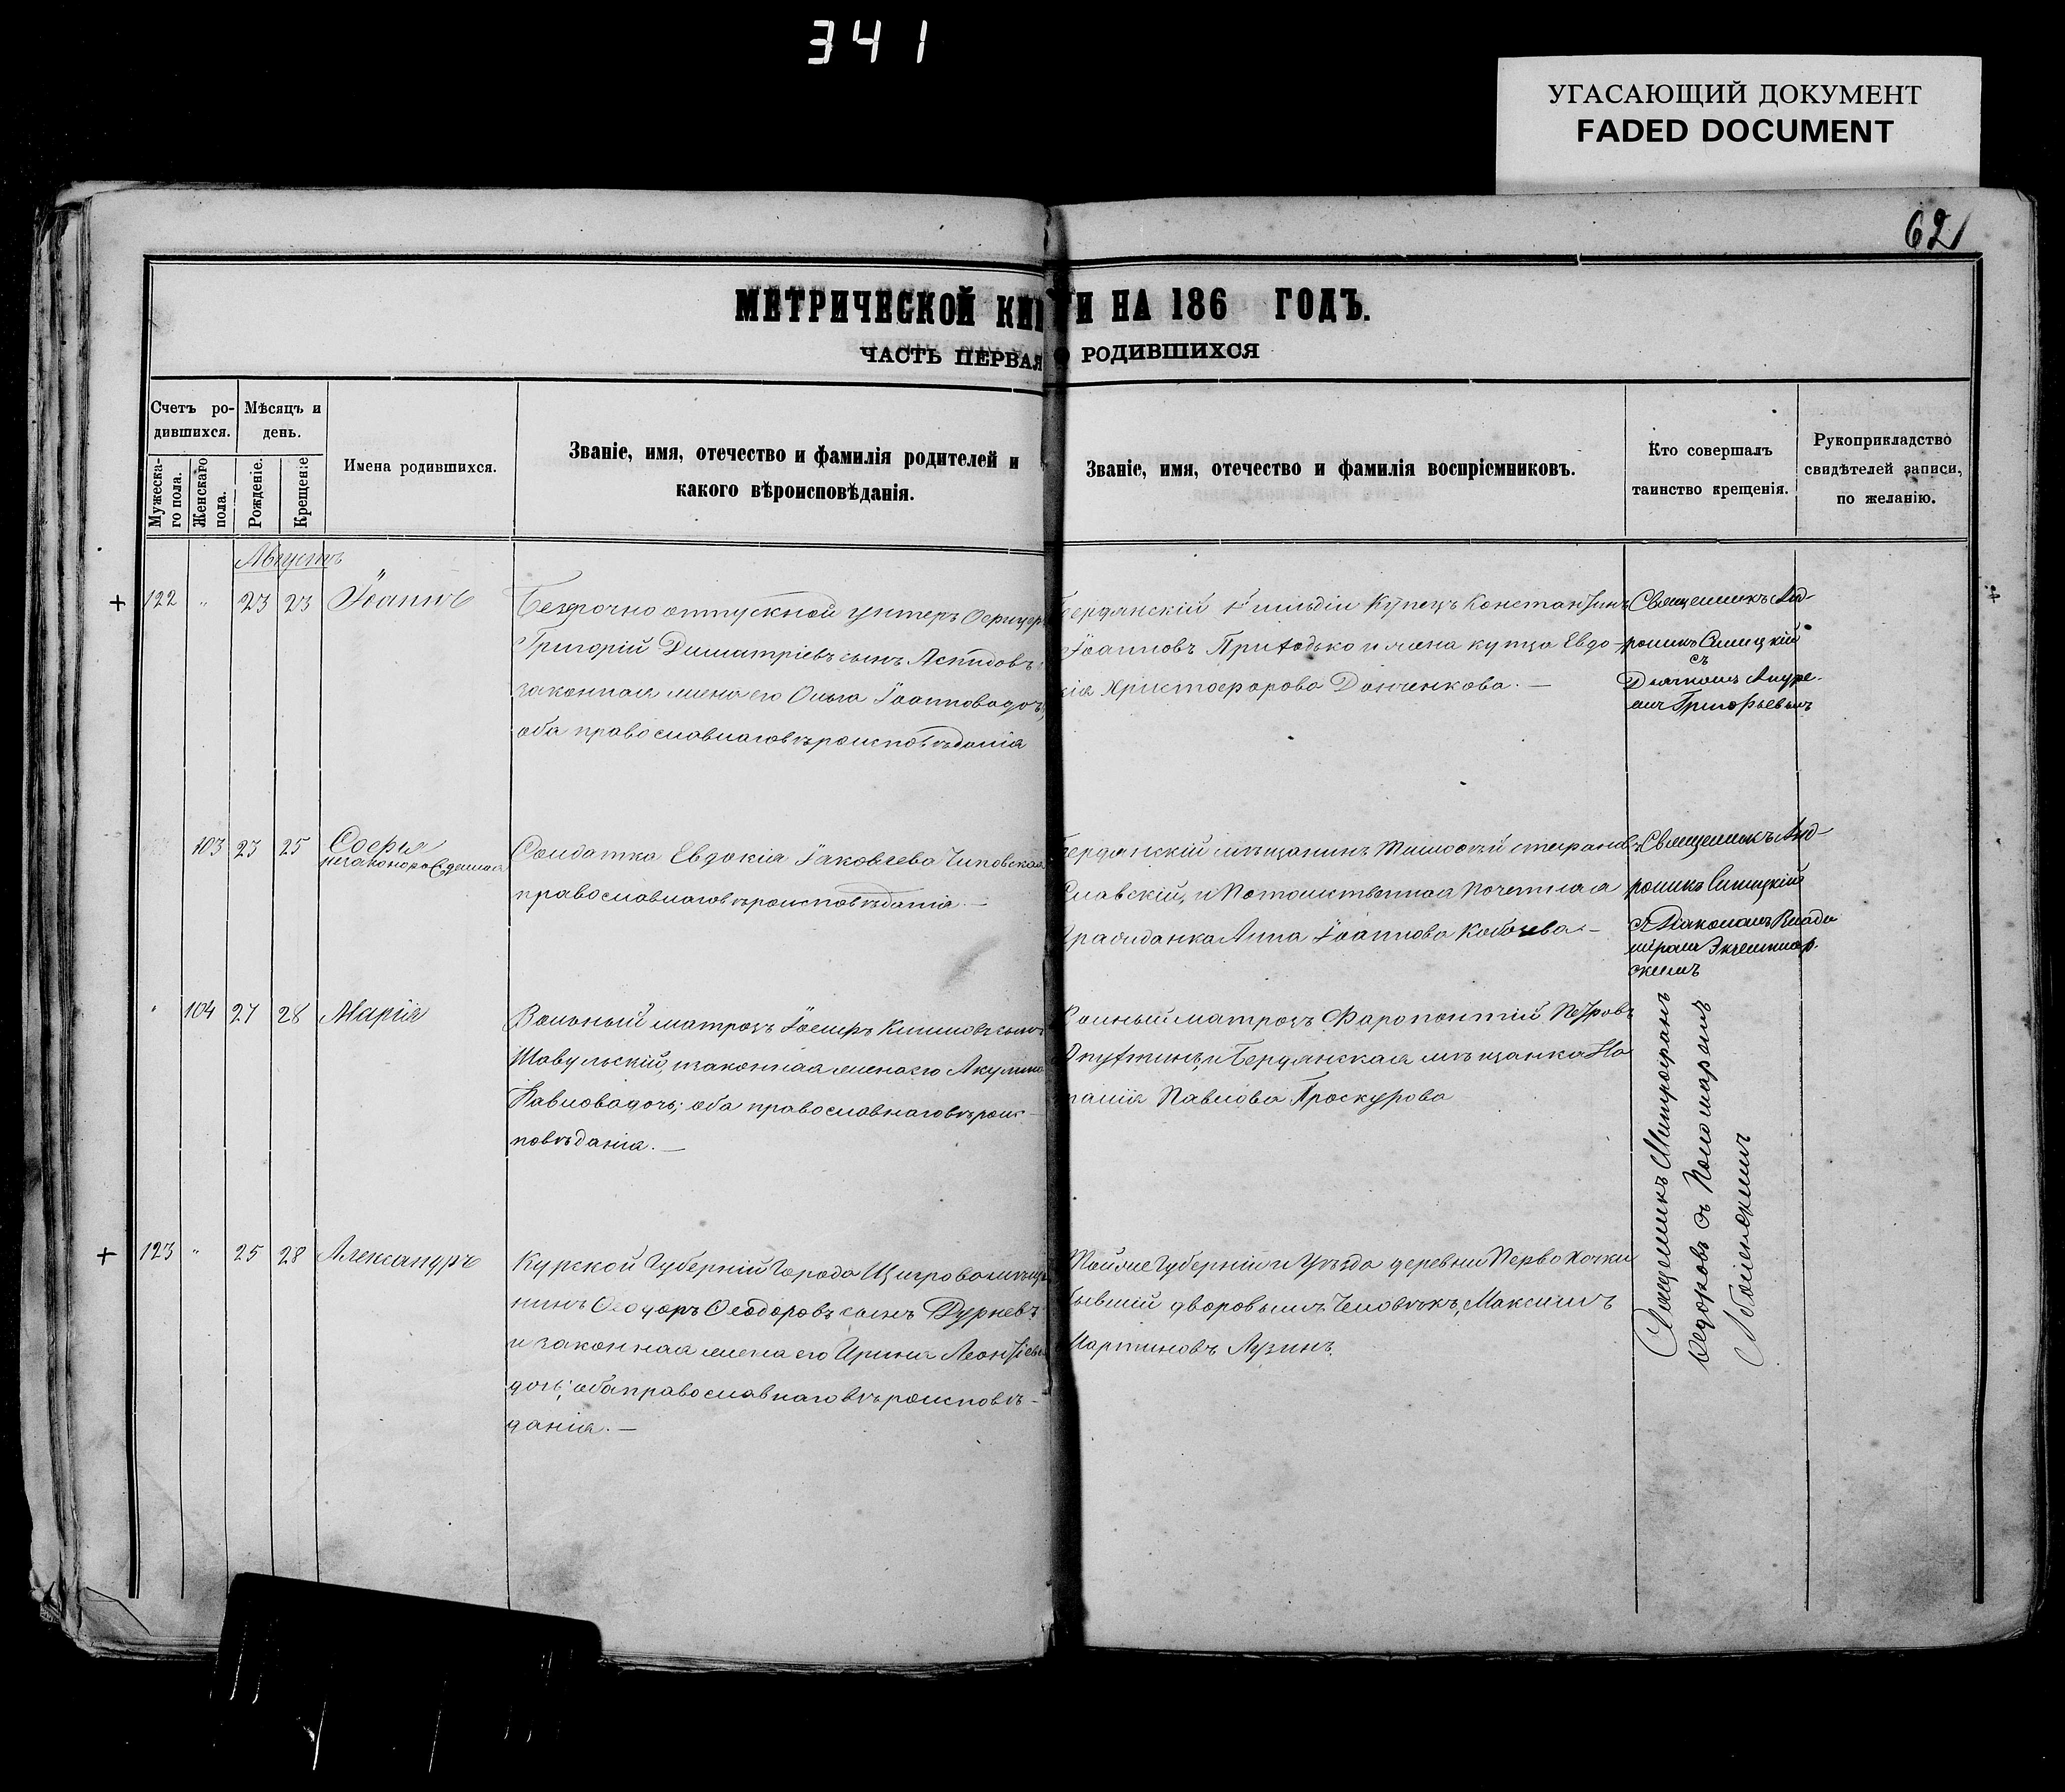 341
УГАСАЮЩИЙ ДОКУМЕНТ
FADED DOCUMENT
62
МЕТРИЧЕСКОЙ КНИГИ НА 186 ГОДЪ.
ЧАСТЬ ПЕРВАЯ О РОДИВШИХСЯ
Счетъ ро-
дившихся.
Мужеска-
го пола.
Женскаго
пола.
Мѣсяцъ и
день.
Рожденіе.
Крещеніе
Имена родившихся.
Званіе, имя, отечество и фамилія родителей и
какого вѣроисповѣданія.
Званіе, имя, отечество и фамилія воспріемниковъ.
Кто совершалъ
таинство крещенія.
Рукоприкладство
свидѣтелей записи,
по желанію.
Августъ
+ 122 " 23 23 Іоаннъ
Безсрочно отпускной унтеръ Офицеръ
Григорій Димитріевъ сынъ
законная жена его Ольга Іоаннова дочь,
оба православнаго вѣроисповѣданія
Бердянскій гильдіи Купецъ Константинъ
Іоанновъ Приходько и жена купца Евдо-
кія Христофорова Донченкова. —
Священникъ Анд-
роникъ Синицкій
съ
Діакономъ Андре-
емъ Григорьевымъ
103 23 25 Софія
незаконорожденная
Солдатка Евдокія Іаковлева
православнаго вѣроисповѣданія. —
Бердянскій мѣщанинъ Тимофей Стефановъ
Славскій, и Потомственная Почетная
гражданка Анна Іоаннова
Священникъ Анд-
роникъ Синицкій
съ Діакономъ Влади
міромъ
скимъ
" 104 27 28 Марія
Вольный матрозъ Іосифъ сынъ
законная жена его Акулина
Павлова дочь; оба православнаго вѣроис-
повѣданія. —
Вольный матрозъ Петровъ
и Бердянская мѣщанка На
талія Павлова Проскурова
Священникъ Митрофанъ
съ Пономаремъ
+ 123 " 25 28 Александръ
Курской Губерніи Города Щигрова мѣща
нинъ Ѳеодоръ Ѳеодоровъ сынъ Дурневъ
и законная жена его Ирина Леонтіева
дочь; оба православнаго вѣроисповѣ-
данія. —
Той же Губерніи и Уѣзда деревни
бывшій дворовымъ Человѣкъ, Максимъ
Мартиновъ Лузинъ.